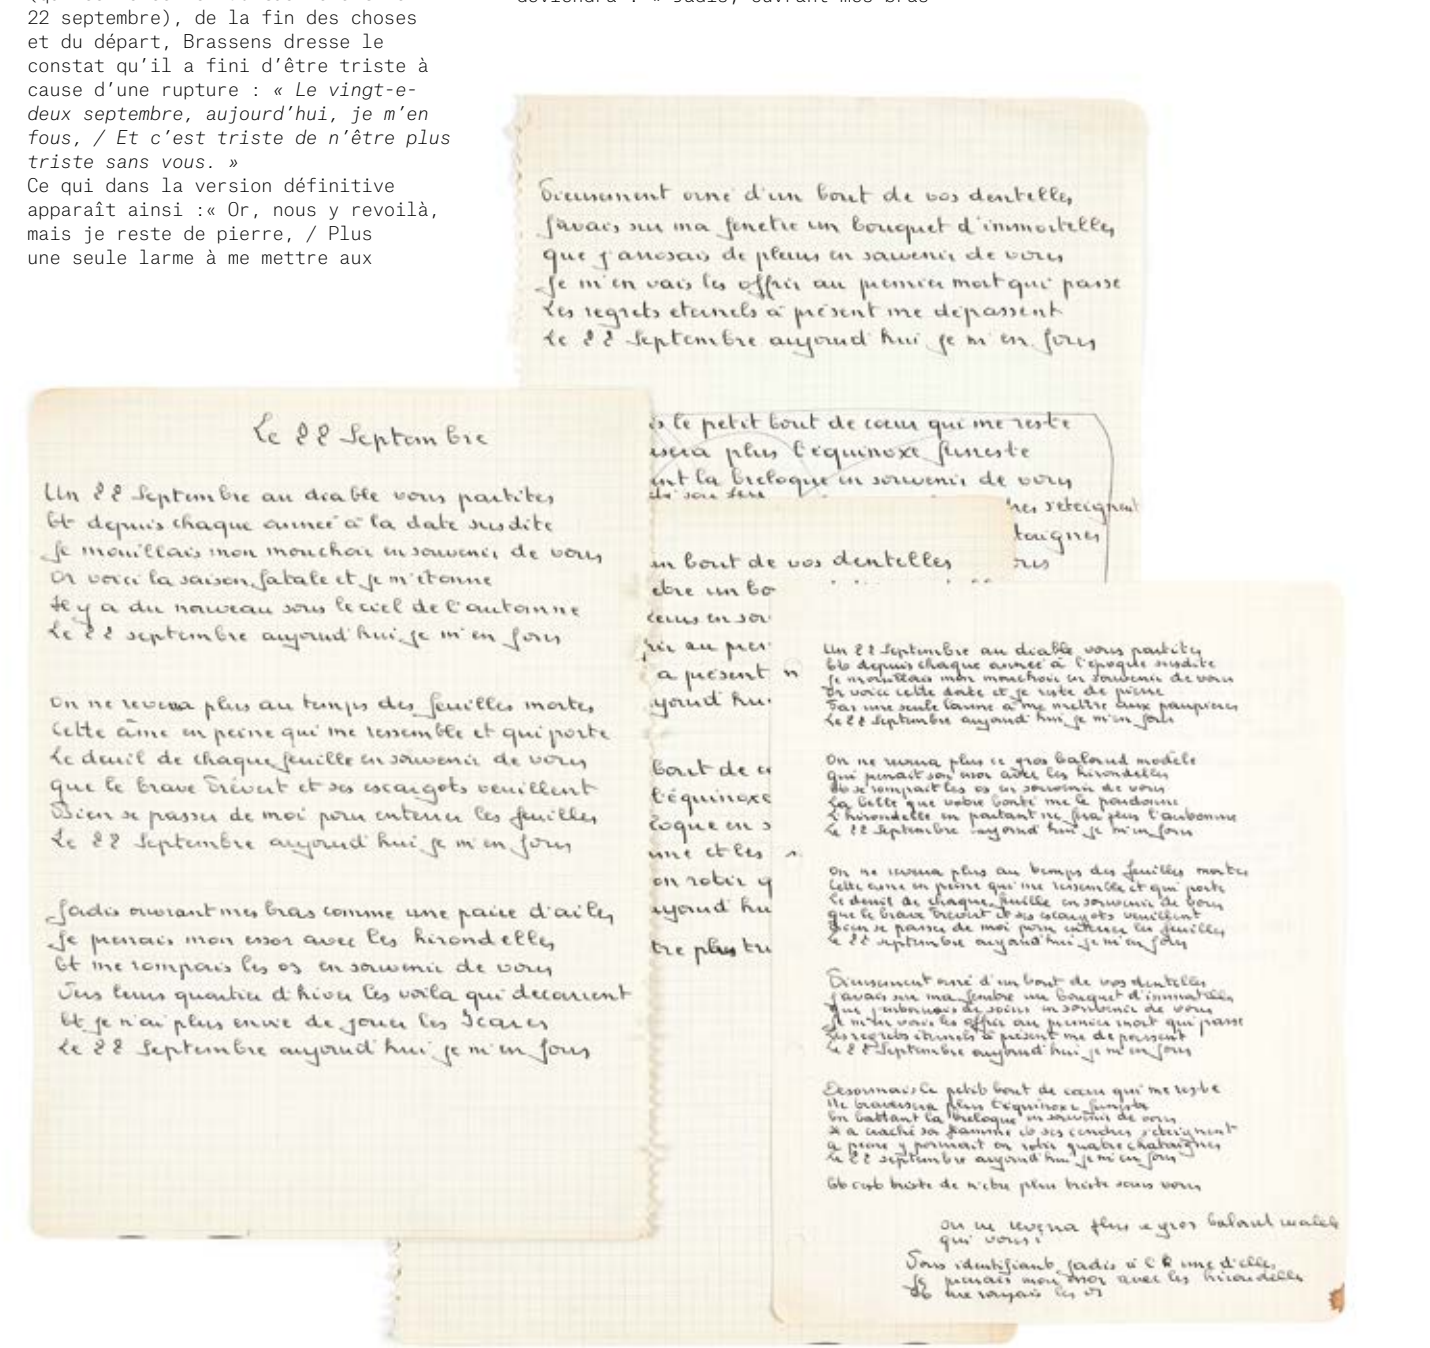 22 septembre), de la fin des choses
et du départ, Brassens dresse le
constat qu'il a fini d'être triste à
cause d'une rupture : « Le vingt-e-
deux septembre, aujourd'hui, je m'en
fous, / Et c'est triste de n'être plus
triste sans vous. »
Ce qui dans la version définitive
apparaît ainsi :« Or, nous y revoilà,
mais je reste de pierre, / Plus
une seule larme à me mettre aux
deviendra : « Jadis, ouvrant mes bras
Pieusement orné d'un bout de vos dentelles
J'avais sur ma fenetre un bouquet d'immortelles
que j'arrosais de pleurs en souvenir de vous
Je m'en vais les offrir au premier mort qui passe
Les regrets eternels à présent me dépassent
Le 22 Septembre aujourd'hui je m'en fous
le petit bout de cœur qui me reste
plus l'équinoxe funeste
la breloque en souvenir de vous
s'eteignent
Le 22 Septembre
Un 22 Septembre au diable vous partites
Et depuis chaque anneé à la date susdite
Je mouillais mon mouchoir en souvenir de vous
Or voici la saison fatale et je m'étonne
Il y a du nouveau sous le ciel de l'automne
Le 22 septembre aujourd'hui je m'en fous
On ne reverra plus au temps des feuilles mortes
Cette âme en peine qui me ressemble et qui porte
Le deuil de chaque feuille en souvenir de vous
que le brave Prévert et ses escargots veuillent
Bien se passer de moi pour enterrer les feuilles
Le 22 Septembre aujourd'hui je m'en fous
Jadis ouvrant mes bras comme une paire d'ailes
Je prenais mon essor avec les hirondelles
Et me rompais les os en souvenir de vous
Vers leurs quartier d'hiver les voila qui decarrent
Et je n'ai plus envie de jouer les Icares
Le 22 Septembre aujourd'hui je m'en fous
bout de vos dentelles
un bo
en sou
au prem
a présent
bout de c
l'équinoxe
en s
et les
plus tri
Un 22 Septembre au diable vous partites
Et depuis chaque anneé à l'époque susdite
Je mouillais mon mouchoir en souvenir de vous
Or voici cette date et je reste de pierre
Pas une seule larme à me mettre aux paupieres
Le 22 Septembre aujourd'hui je m'en fous
On ne reverra plus ce gros balourd modèle
qui prenait son essor avec les hirondelles
Et se rompait les os en souvenir de vous
La belle que votre bonté me le pardonne
L'hirondelle en partant ne fera plus l'automne
Le 22 Septembre aujourd'hui je m'en fous
On ne reverra plus au temps des feuilles mortes
Cette ame en peine qui me ressemble et qui porte
Le deuil de chaque feuille en souvenir de vous
que le brave Prévert et ses escargots veuillent
Bien se passer de moi pour enterrer les feuilles
Le 22 septembre aujourd'hui je m'en fous
Pieusement orné d'un bout de vos dentelles
J'avais sur ma fenêtre un bouquet d'immortelles
de soins en souvenir de vous
Je m'en vais les offrir au premier mort qui passe
Les regrets éternels à présent me depassent
Le 22 Septembre aujourd'hui je m'en fous
Desormais le petit bout de cœur qui me reste
Ne traversera plus l'équinoxe funeste
En battant la breloque en souvenir de vous
Il a craché sa flamme et ses cendres s'eteignent
a peine y pourrait on rotir quatre chataignes
Le 22 septembre aujourd'hui je m'en fous
Et c'est triste de n'etre plus triste sans vous
On ne reverra plus ce gros balourd
qui vous
Vous identifiant jadis à l'une d'elles
Je prenais mon essor avec les hirondelles
Et me les os